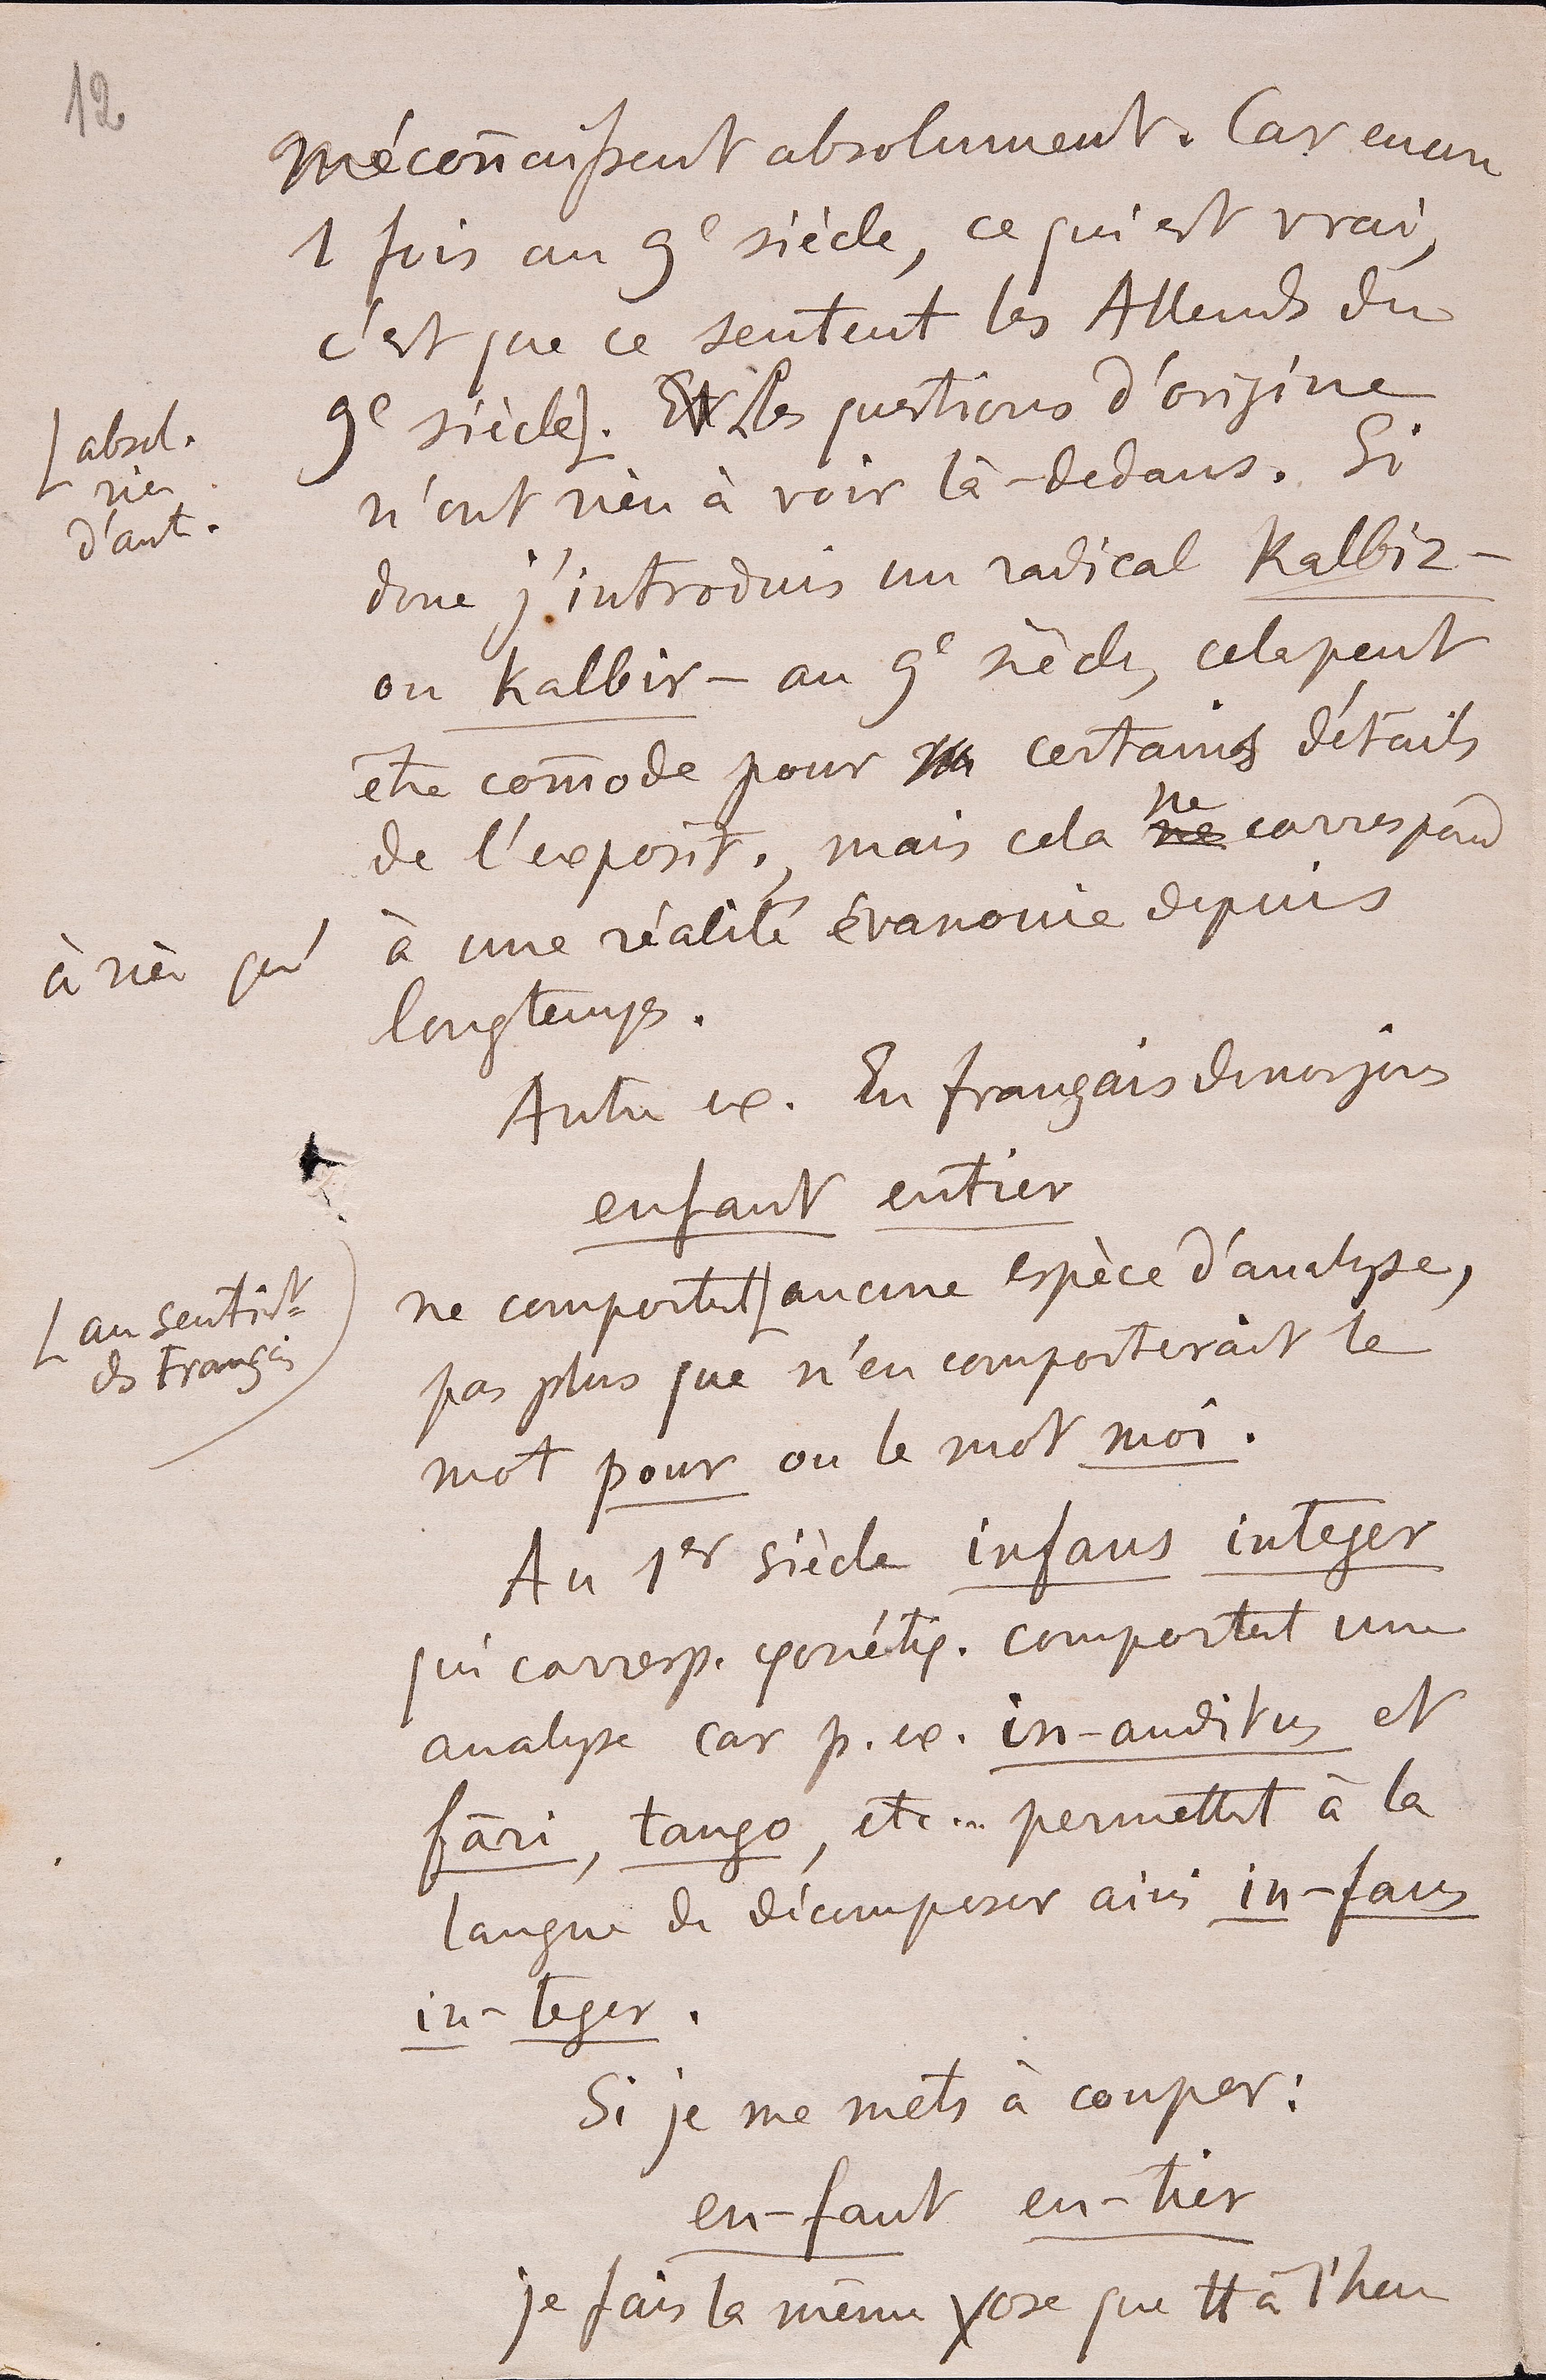 12
méconnaissent absolument. Car encore
1 fois au 9e siècle, ce qui est vrai,
c'est que ce sentent les Allemds du
9e siècle]. Et Les questions d'origine
[absol.
rien
d'aut.
n'ont rien à voir là-dedans. Si
donc j'introduis un radical kalbiz-
ou kalbir- au 9e siècle, cela peut
être com̄ode pour certains détails
de l'exposit., mais cela ne ne correspond
à rien qu' à une réalité évanouie depuis
longtemps.
Autre ex. En français de nos jours
enfant entier
ne comportent [aucune espèce d'analyse,
[au sentimt
ds Français
pas plus que n'en comporterait le
mot pour ou le mot moi.
Au 1er siècle infans integer
qui corresp. φonétiq. comportent une
analyse car p. ex. in-auditus et
fāri, tango, etc... permettent à la
langue de décomposer ainsi in-fans
in-teger.
Si je me mets à couper:
en-fant en-tier
je fais la même χose que tt à l'heure